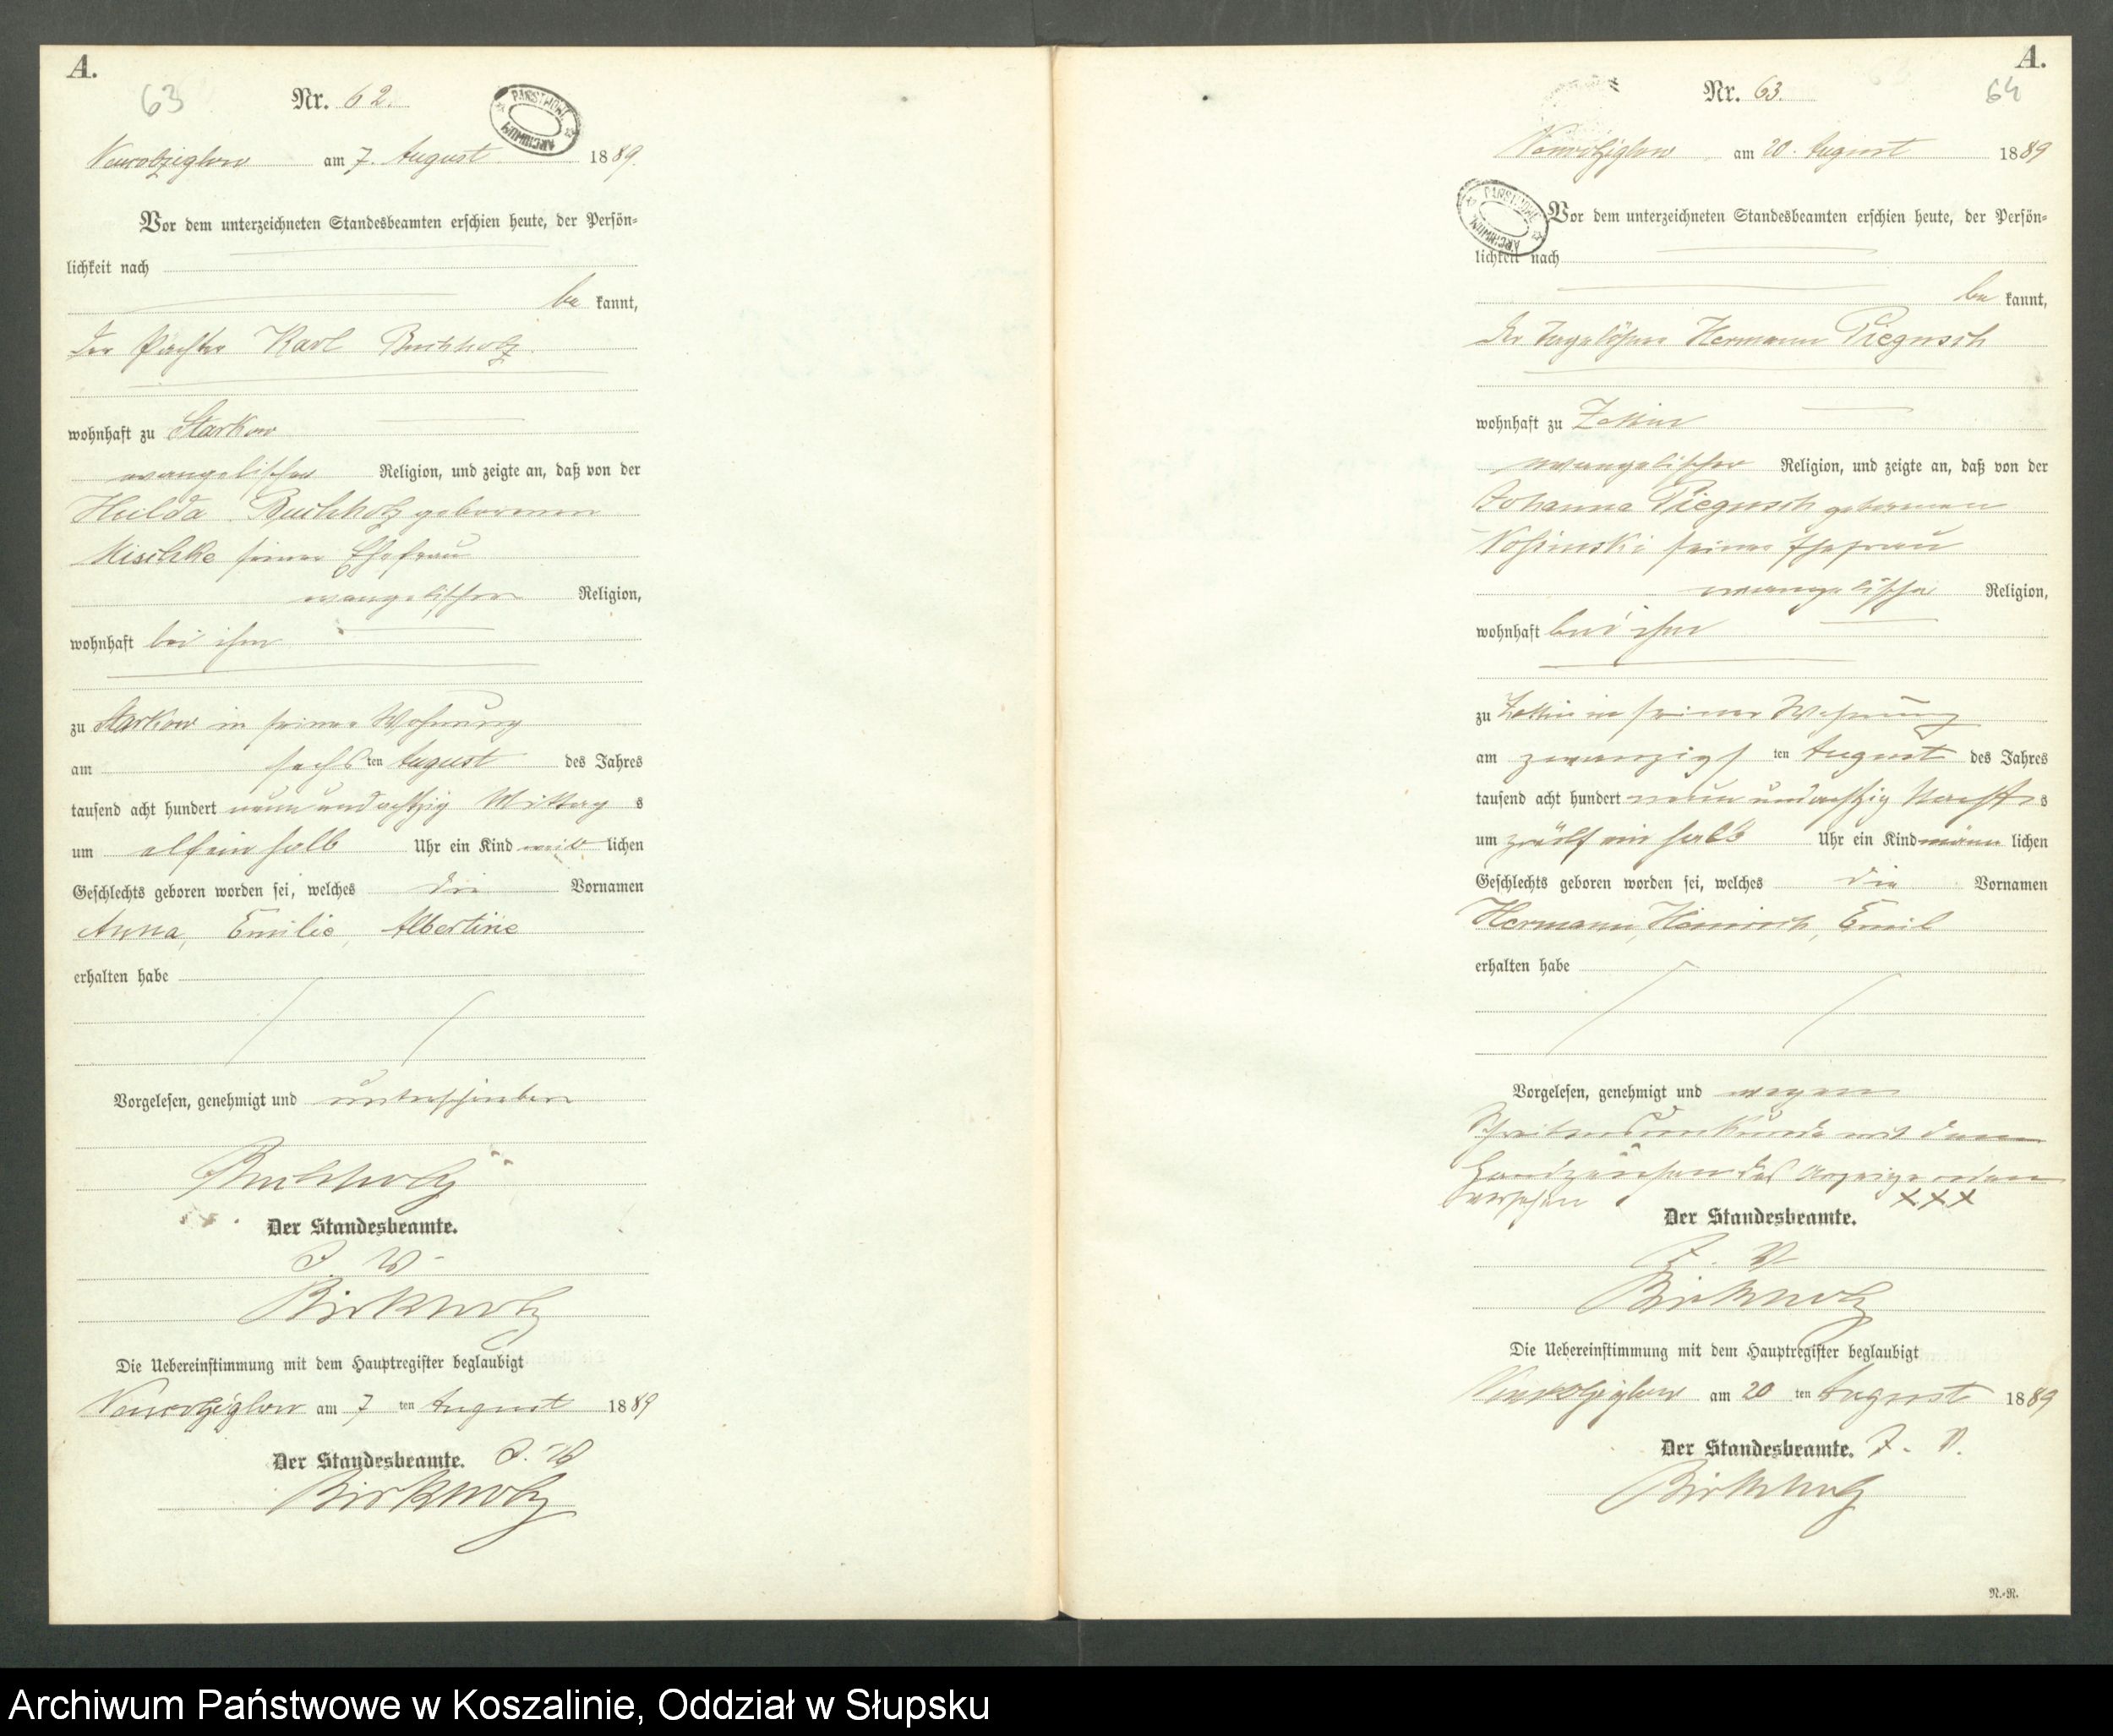 A.
63
Nr. 62.
PAŃSTWOWE
ARCHIWUM
am 7. August 1889.
Vor dem unterzeichneten Standesbeamten erschien heute, der Persön=
lichkeit nach
be kannt,
der Pächter Karl Buchholz
wohnhaft zu Starkow
evangelischer Religion, und zeigte an, daß von der
Hulda Buchholz geborenen
Mischke seiner Ehefrau
evangelischer Religion,
wohnhaft bei ihm
zu Starkow in seiner Wohnung
am sechs ten August des Jahres
tausend acht hundert neun und achtzig Mittag s
um elf ein halb Uhr ein Kind weib lichen
Geschlechts geboren worden sei, welches die Vornamen
Anna, Emilie, Albertine
erhalten habe
Vorgelesen, genehmigt und unterschrieben
Buchholz
Der Standesbeamte.
J. V.
Birkholz
Die Uebereinstimmung mit dem Hauptregister beglaubigt
am 7 ten August 1889
Der Standesbeamte. J. V.
Birkholz
A.
64
Nr. 63.
am 20. August 1889
PAŃSTWOWE
ARCHIWUM
Vor dem unterzeichneten Standesbeamten erschien heute, der Persön=
lichkeit nach
be kannt,
der Tagelöhner Hermann Piegusch
wohnhaft zu Zettin
evangelischer Religion, und zeigte an, daß von der
Johanna Piegusch geborenen
seiner Ehefrau
evangelischer Religion,
wohnhaft bei ihm
zu Zettin in seiner Wohnung
am zwanzigs ten August des Jahres
tausend acht hundert neun und achtzig Nacht s
um zwölf ein halb Uhr ein Kind männ lichen
Geschlechts geboren worden sei, welches die Vornamen
Hermann, Heinrich, Emil
erhalten habe
Vorgelesen, genehmigt und wegen
Schreibensunkunde mit dem
Handzeichen des Anzeigenden
versehen XXX
Der Standesbeamte.
J. V.
Birkholz
Die Uebereinstimmung mit dem Hauptregister beglaubigt
am 20 ten August 1889
Der Standesbeamte. J. V.
Birkholz
N.=R.
Archiwum Państwowe w Koszalinie, Oddział w Słupsku